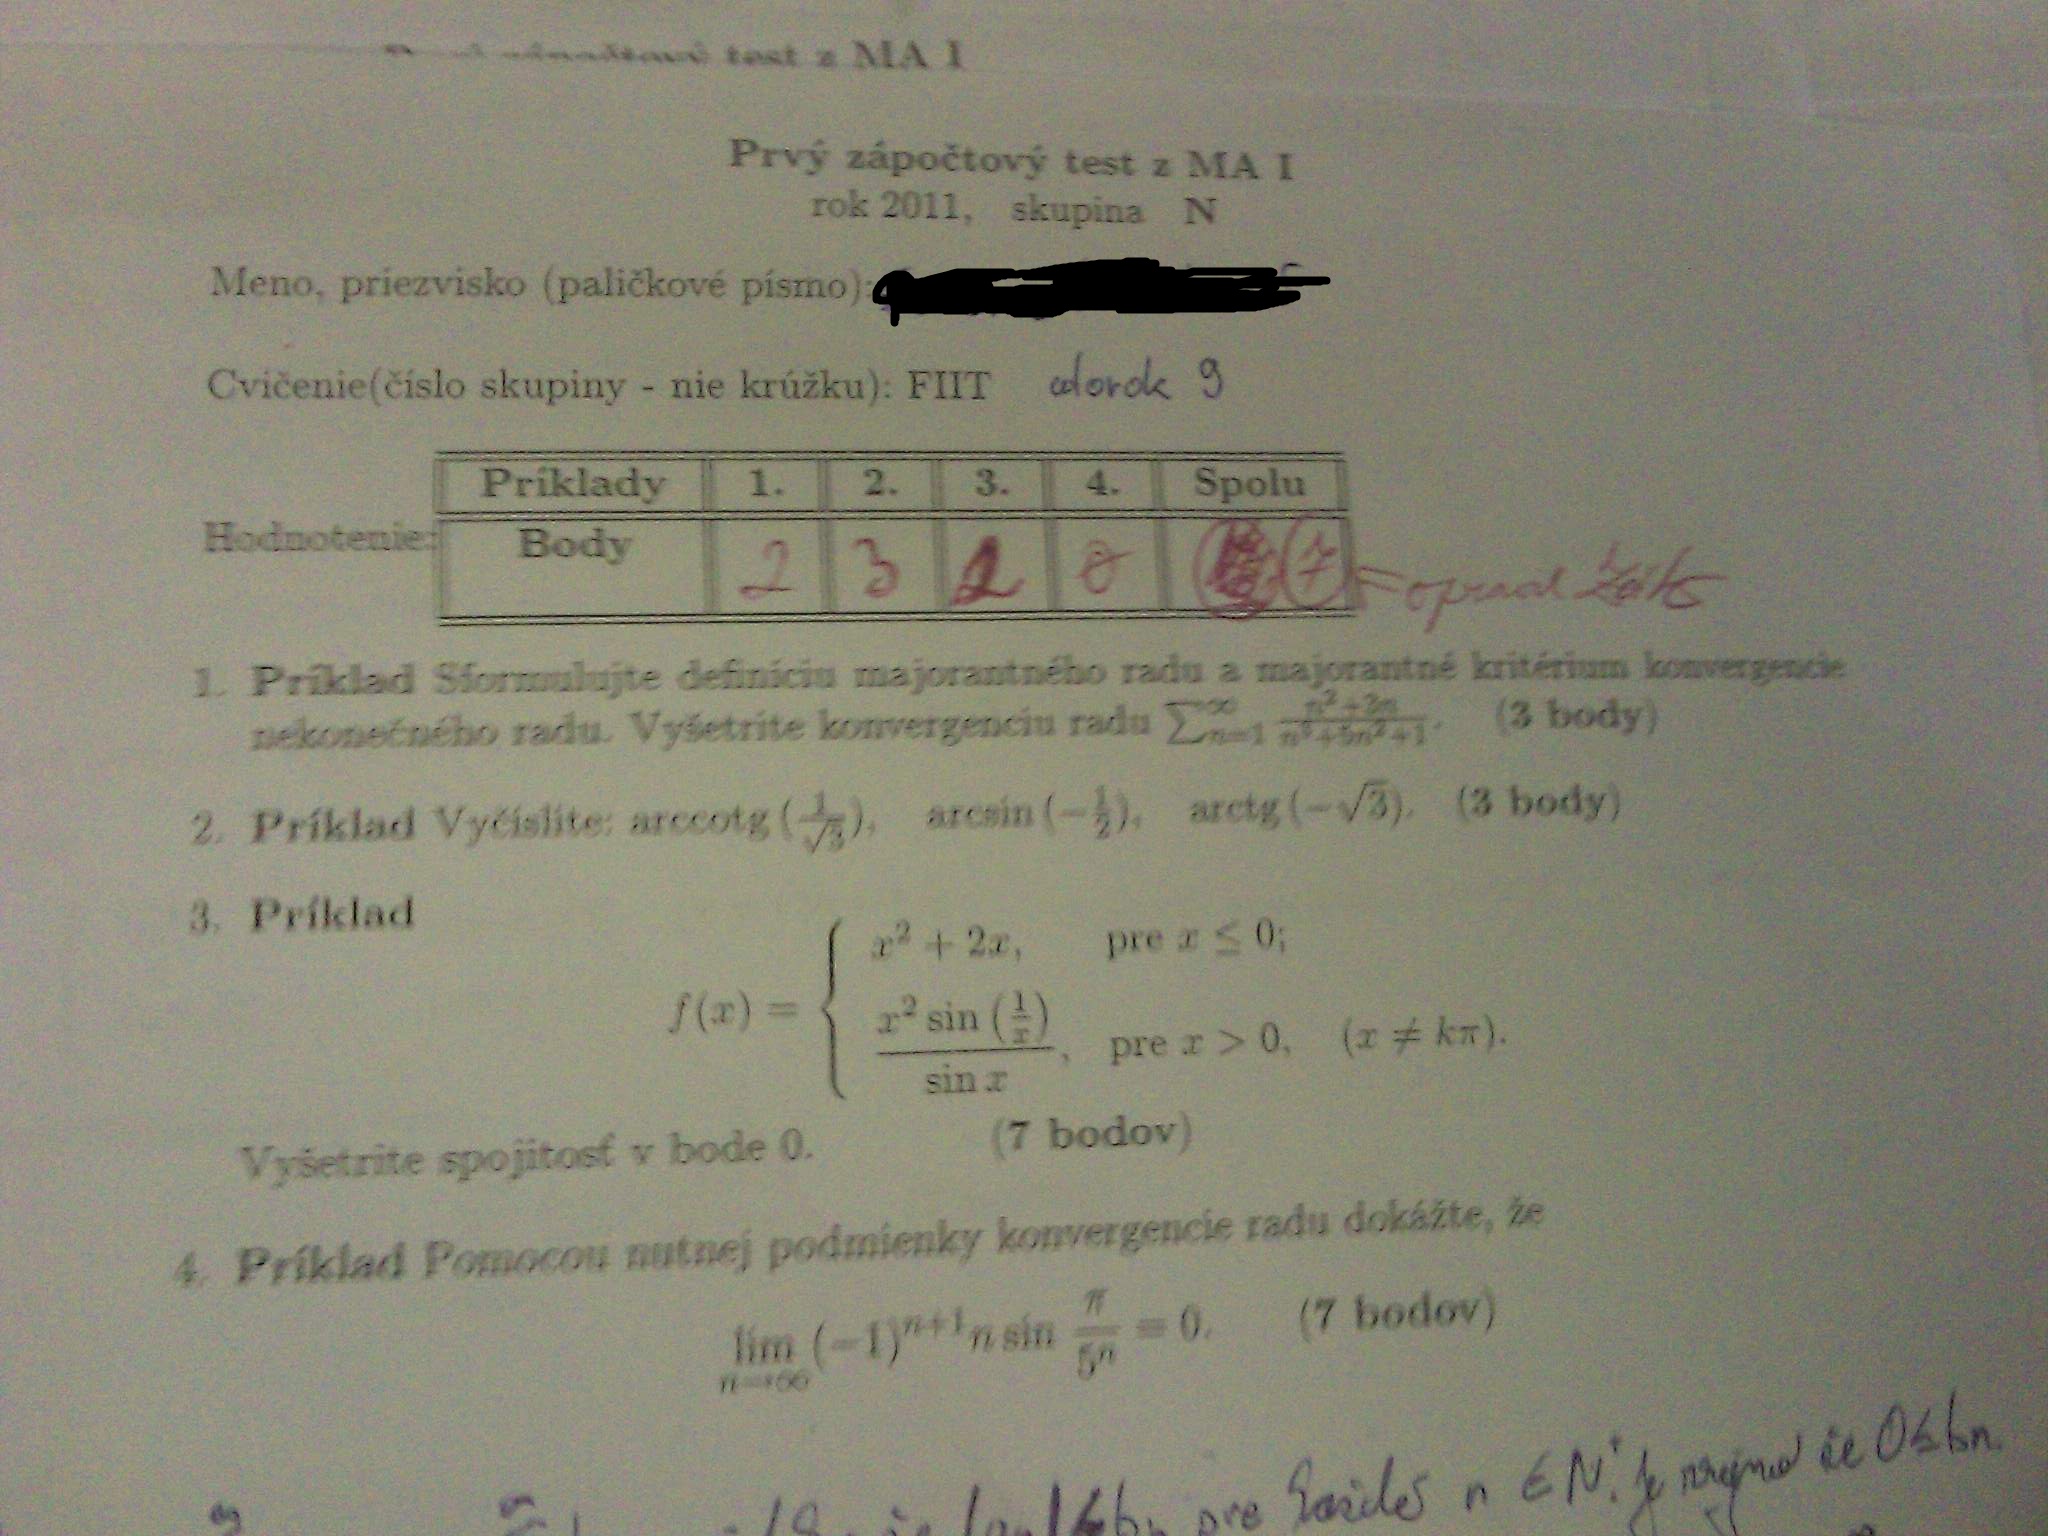 test z MA I
Prvý zápočtový test z MA I
rok 2011, skupina N
Meno, priezvisko (paličkové písmo):
Cvičenie(číslo skupiny - nie krúžku): FIIT utorok 9
Príklady 1. 2. 3. 4. Spolu
Hodnotenie: Body 2 3 2 0 7 =
1. Príklad Sformulujte definíciu majorantného radu a majorantné kritérium konvergencie
nekonečného radu. Vyšetrite konvergenciu radu (3 body)
2. Príklad Vyčíslite: arccotg (1/√3), arcsin (−1/2), arctg (−√3). (3 body)
3. Príklad
f(x) = { x² + 2x, pre x ≤ 0;
x² sin (1/x) / sin x, pre x > 0, (x ≠ kπ).
Vyšetrite spojitosť v bode 0. (7 bodov)
4. Príklad Pomocou nutnej podmienky konvergencie radu dokážte, že
lim n→∞ (−1)ⁿ⁺¹ n sin π/5ⁿ = 0. (7 bodov)
pre každé n ∈ N. že 0≤bn.